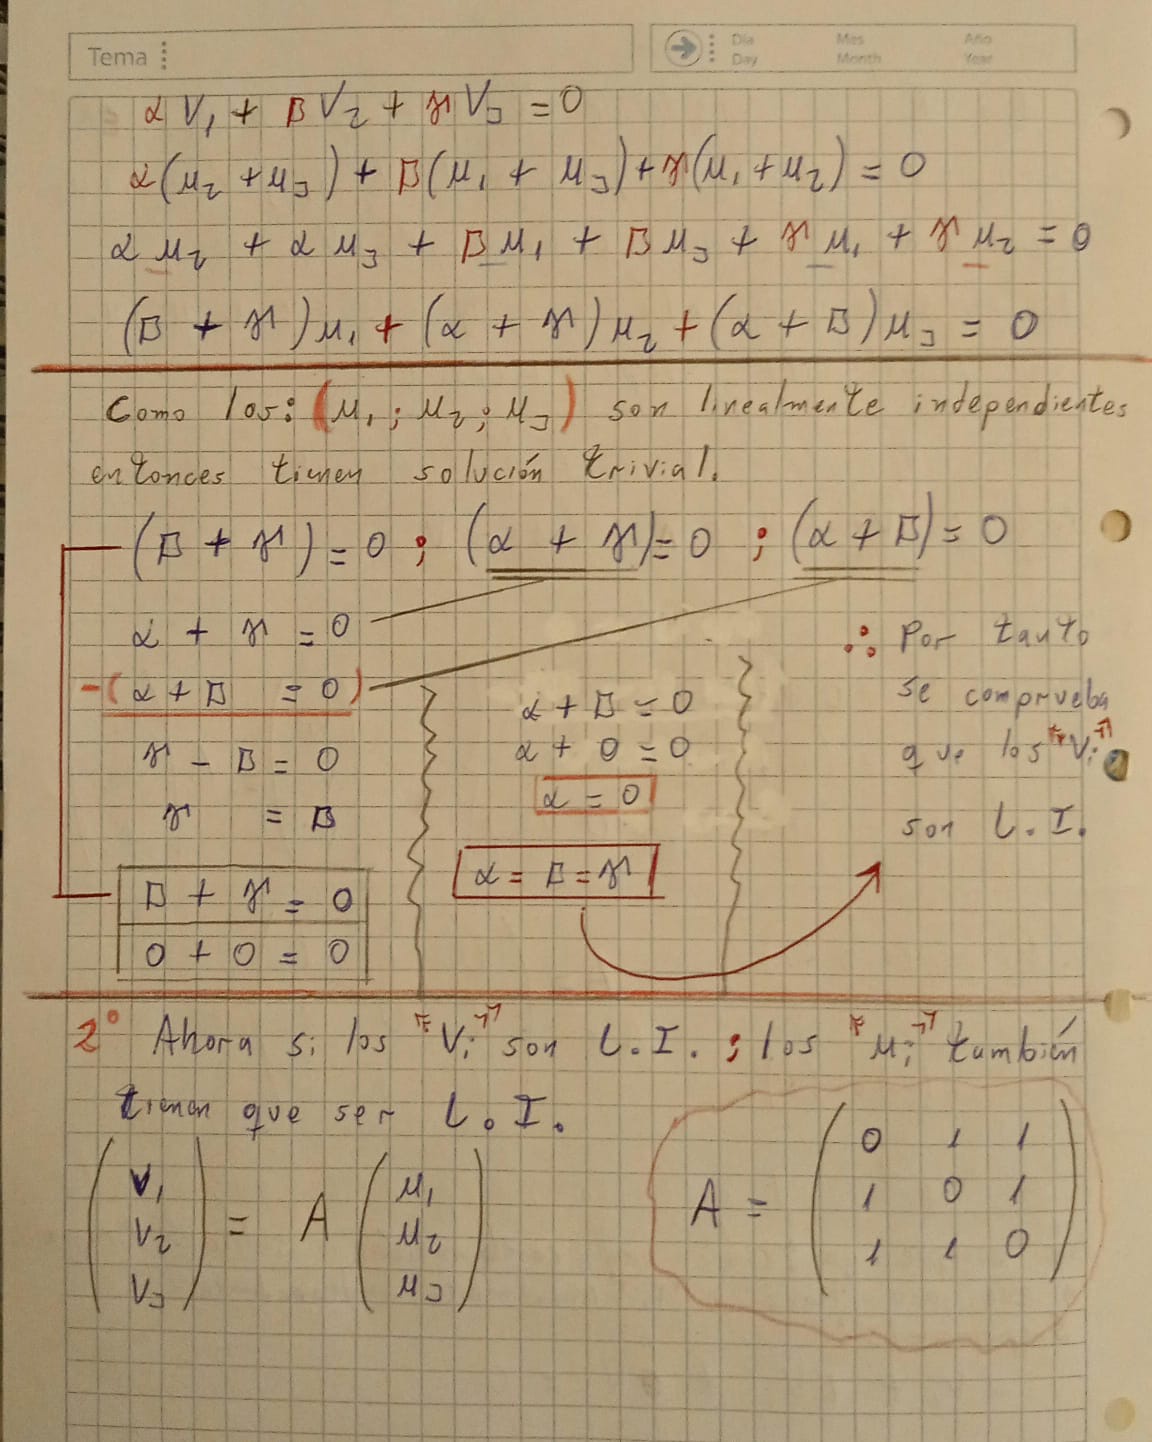 Tema
Día Mes Año
Day Month Year
α V₁ + β V₂ + γ V₃ = 0
α(μ₂ + μ₃) + β(μ₁ + μ₃) + γ(μ₁ + μ₂) = 0
α μ₂ + α μ₃ + β μ₁ + β μ₃ + γ μ₁ + γ μ₂ = 0
(β + γ)μ₁ + (α + γ)μ₂ + (α + β)μ₃ = 0
Como los: (μ₁; μ₂; μ₃) son linealmente independientes
entonces tienen solución trivial.
(β + γ) = 0 ; (α + γ) = 0 ; (α + β) = 0
α + γ = 0
-(α + β = 0)
γ - β = 0
γ = β
β + γ = 0
0 + 0 = 0
α + β = 0
α + 0 = 0
α = 0
α = β = γ
∴ Por tanto
se comprueba
que los "Vi"
son L.I.
2° Ahora si los "Vi" son L.I. ; los "μi" también
tienen que ser L.I.
(V₁ V₂ V₃) = A (μ₁ μ₂ μ₃)
A =
0 1 1
1 0 1
1 1 0